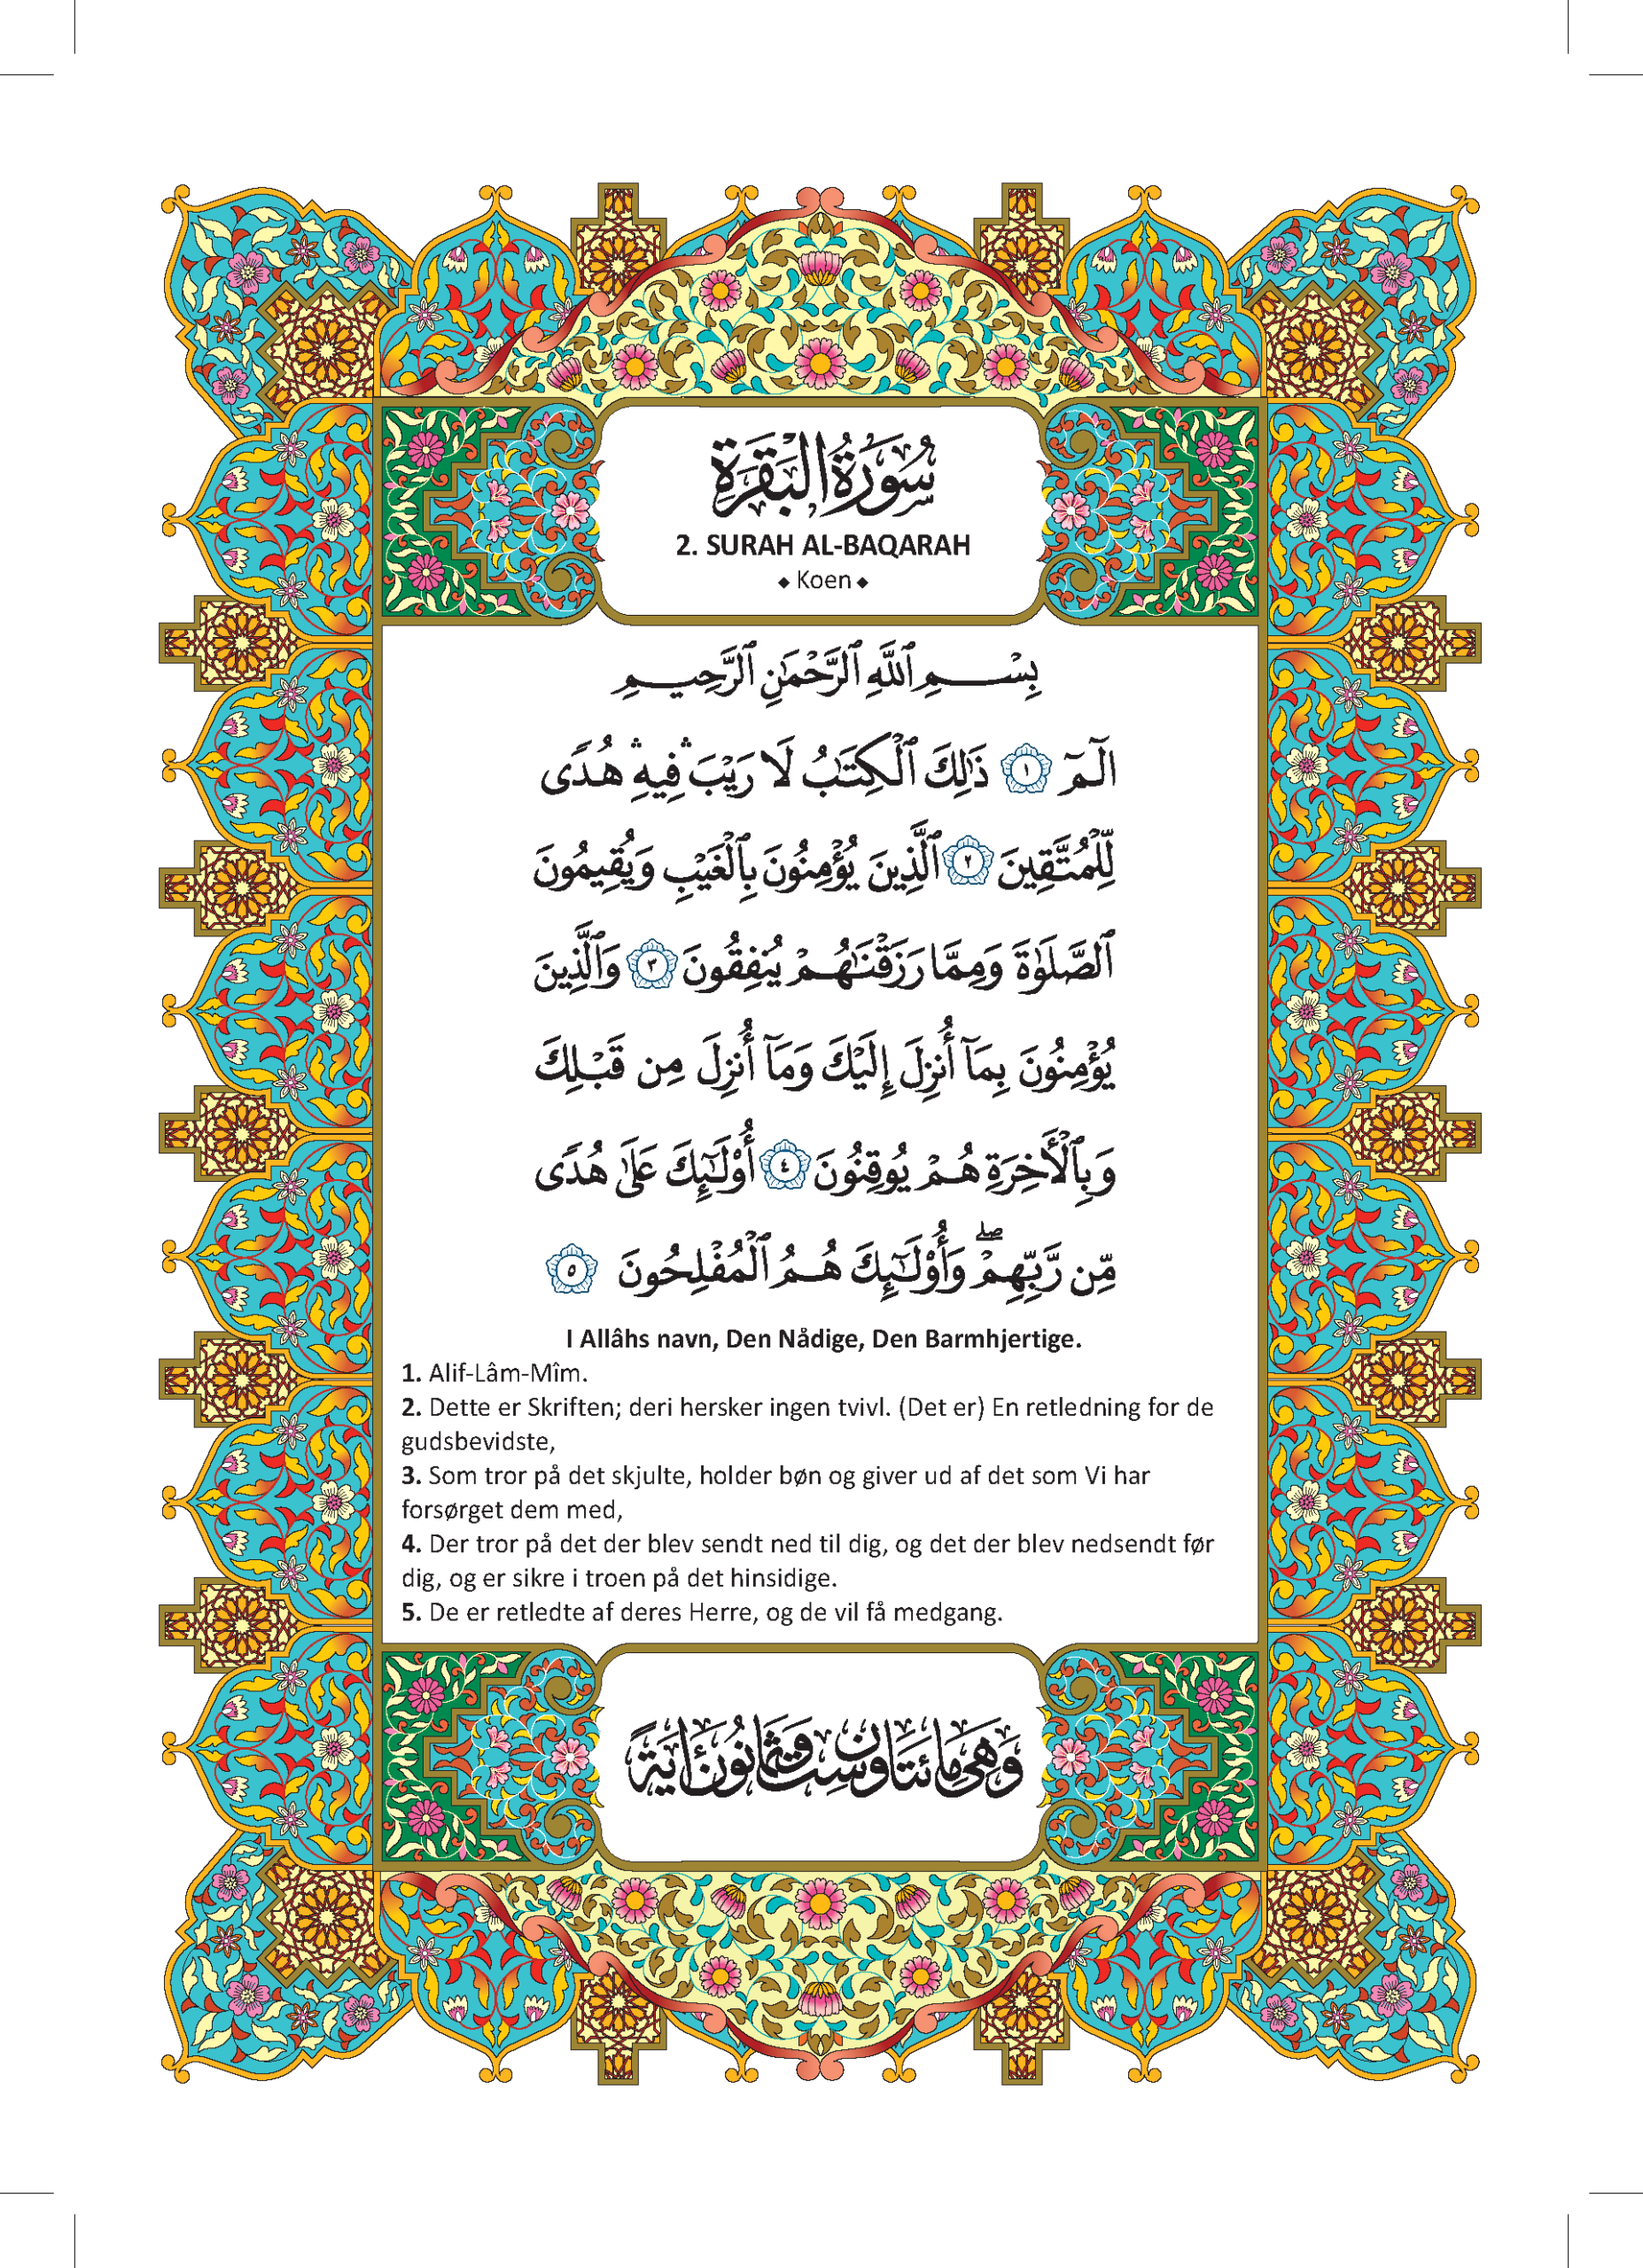 سُورَةُ البَقَرَةِ
2. SURAH AL-BAQARAH
◆ Koen ◆
بِسْمِ ٱللَّهِ ٱلرَّحْمَٰنِ ٱلرَّحِيمِ
الٓمٓ ١ ذَٰلِكَ ٱلْكِتَٰبُ لَا رَيْبَ ۛ فِيهِ ۛ هُدًى
لِّلْمُتَّقِينَ ٢ ٱلَّذِينَ يُؤْمِنُونَ بِٱلْغَيْبِ وَيُقِيمُونَ
ٱلصَّلَوٰةَ وَمِمَّا رَزَقْنَٰهُمْ يُنفِقُونَ ٣ وَٱلَّذِينَ
يُؤْمِنُونَ بِمَآ أُنزِلَ إِلَيْكَ وَمَآ أُنزِلَ مِن قَبْلِكَ
وَبِٱلْأَخِرَةِ هُمْ يُوقِنُونَ ٤ أُو۟لَٰٓئِكَ عَلَىٰ هُدًى
مِّن رَّبِّهِمْ ۖ وَأُو۟لَٰٓئِكَ هُمُ ٱلْمُفْلِحُونَ ٥
I Allâhs navn, Den Nådige, Den Barmhjertige.
1. Alif-Lâm-Mîm.
2. Dette er Skriften; deri hersker ingen tvivl. (Det er) En retledning for de
gudsbevidste,
3. Som tror på det skjulte, holder bøn og giver ud af det som Vi har
forsørget dem med,
4. Der tror på det der blev sendt ned til dig, og det der blev nedsendt før
dig, og er sikre i troen på det hinsidige.
5. De er retledte af deres Herre, og de vil få medgang.
وَهِيَ مِائَتَا وَسِتٌّ وَثَمَانُونَ ءَايَةً